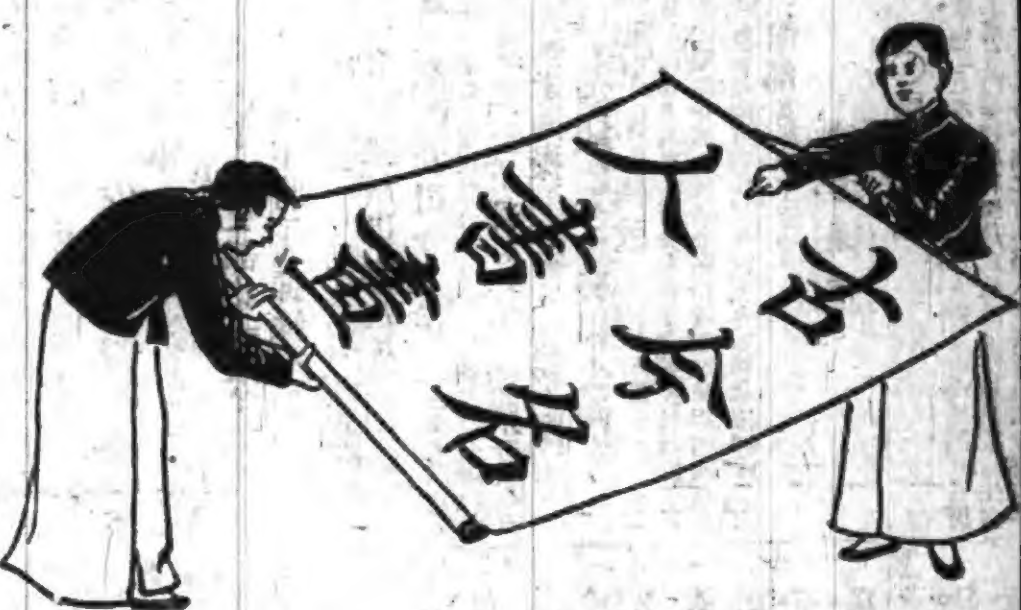 古今名
人書畫